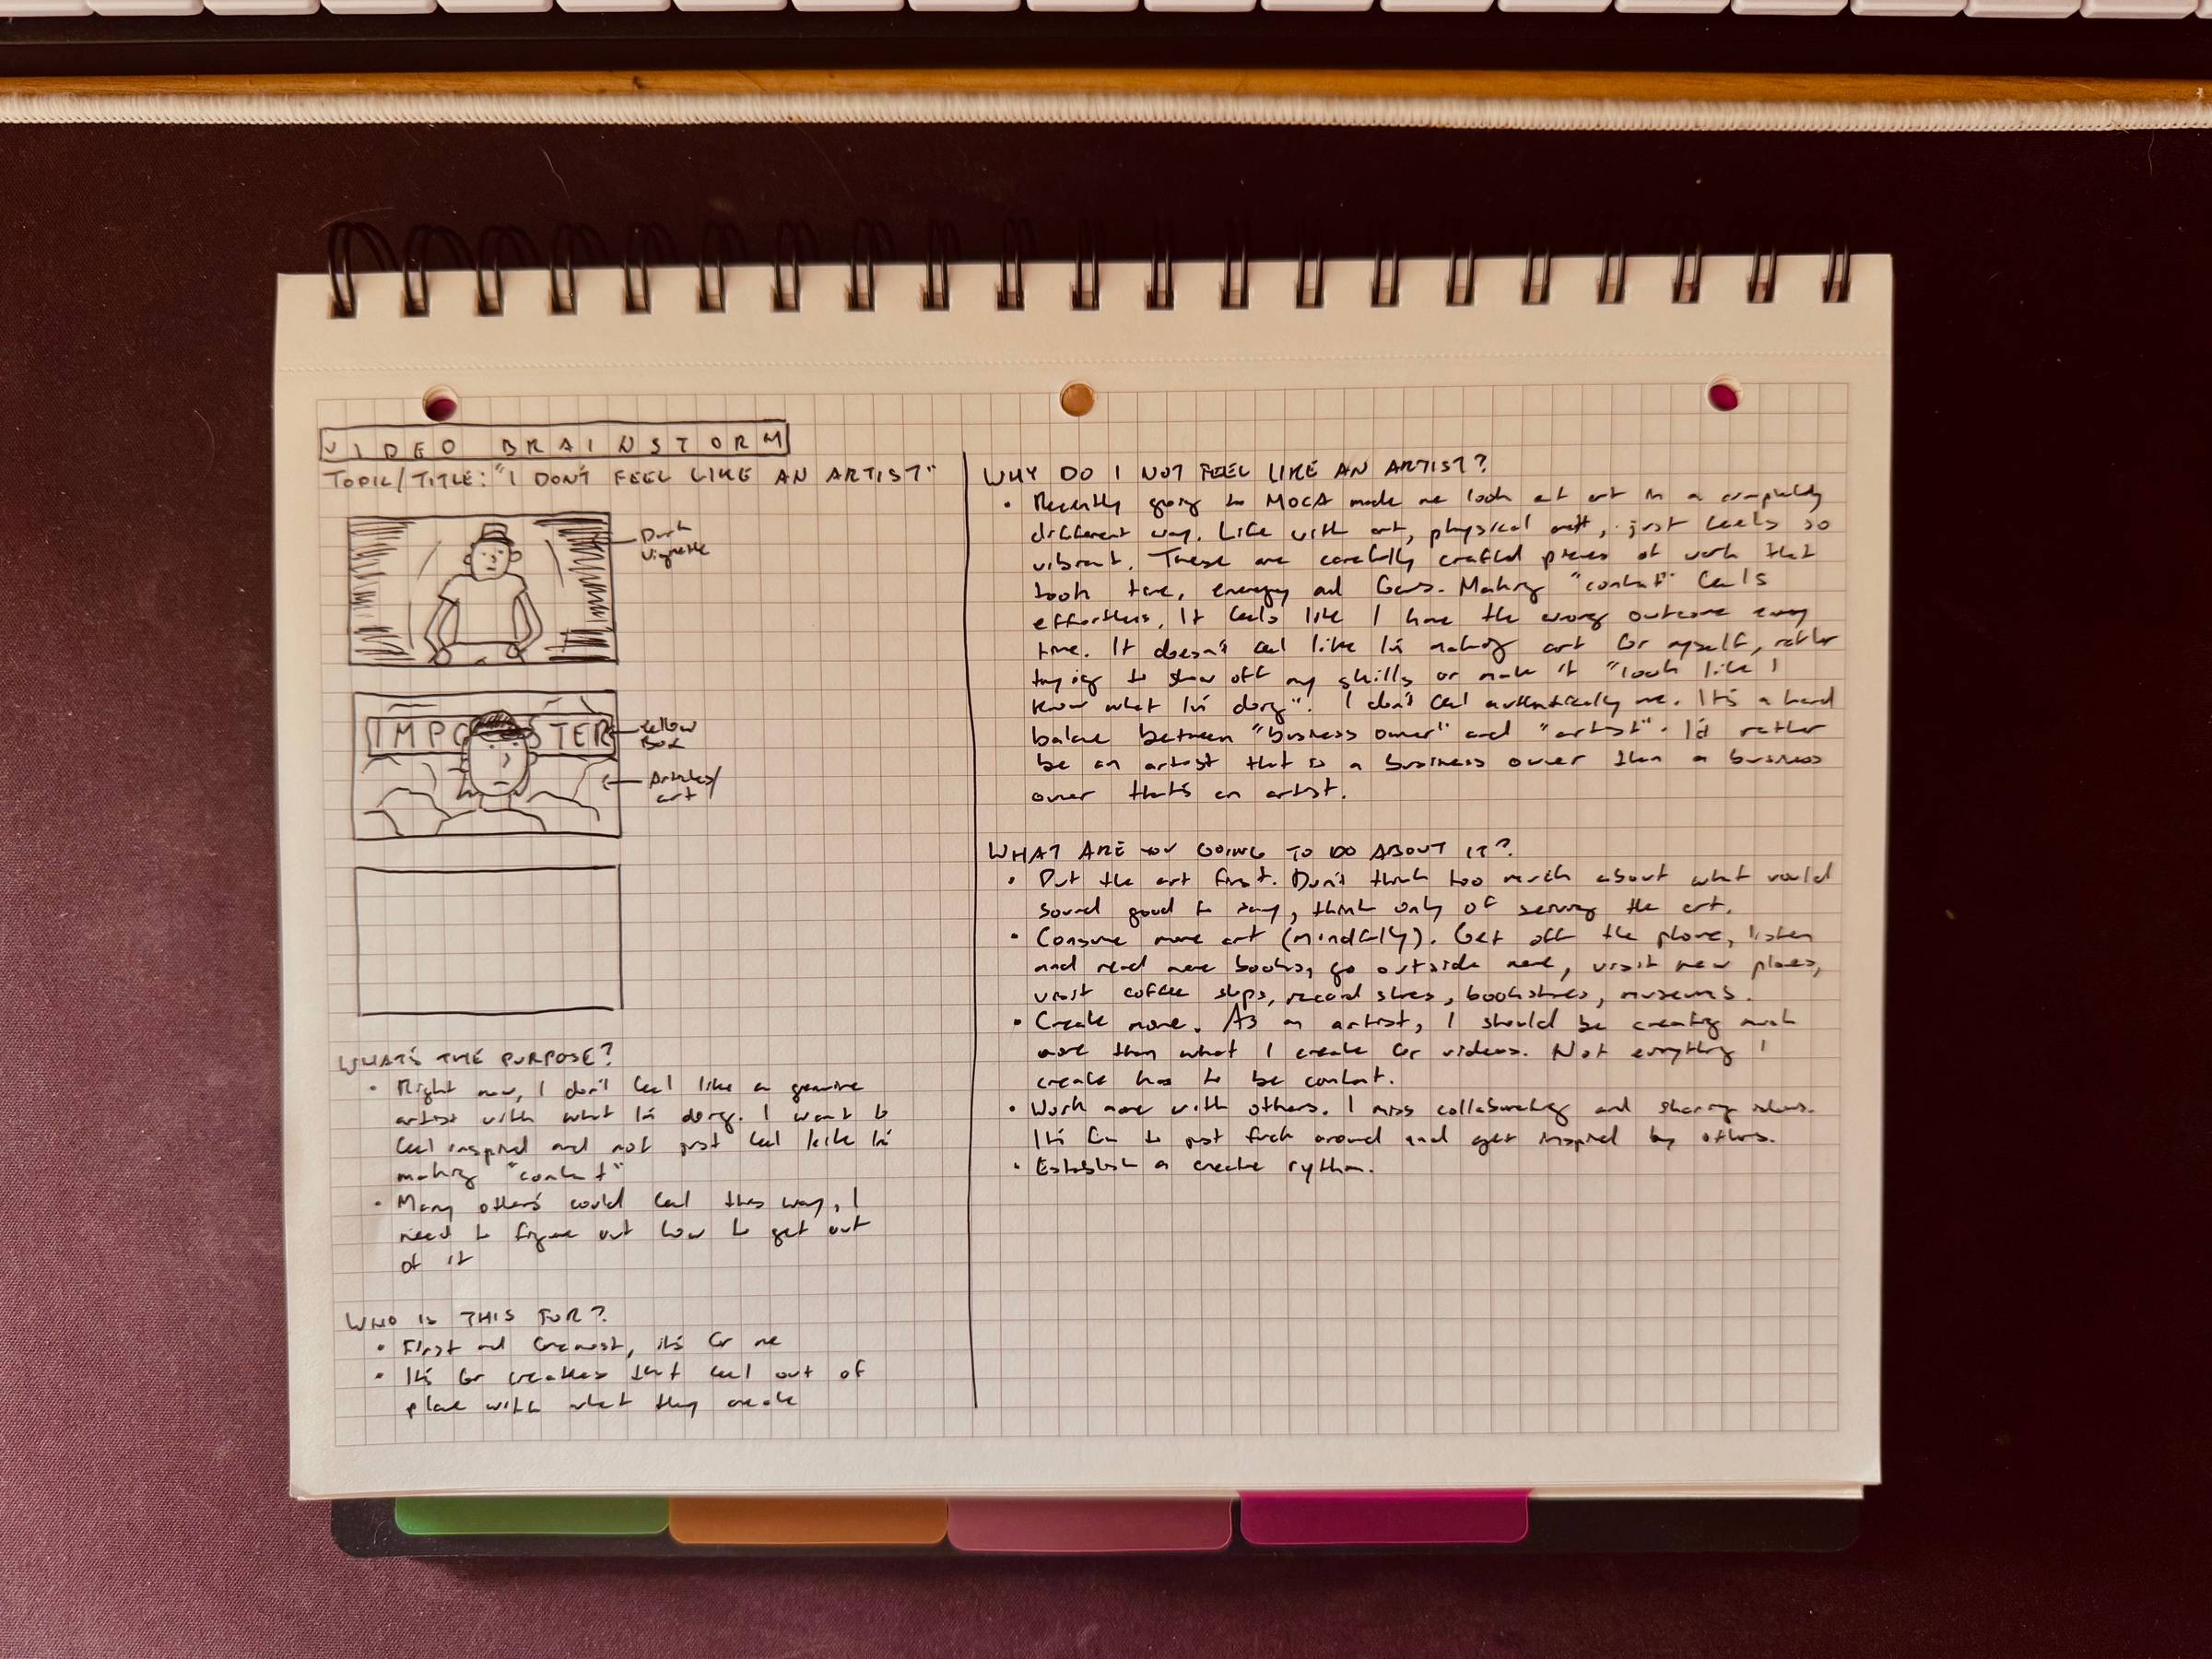 VIDEO BRAINSTORM
TOPIC/TITLE: "I DON'T FEEL LIKE AN ARTIST"
Dark
Vignette
IMPO STER
Yellow
Box
Articles/
art
WHAT'S THE PURPOSE?
• Right now, I don't feel like a genuine
artist with what I'm doing. I want to
feel inspired and not just feel like I'm
making "content"
• Many others could feel this way, I
need to figure out how to get out
of it
WHO IS THIS FOR?
• First and foremost, it's for me
• It's for creatives that feel out of
place with what they create
WHY DO I NOT FEEL LIKE AN ARTIST?
• Recently going to MOCA made me look at art in a completely
different way. Like with art, physical art, just feels so
vibrant. These are carefully crafted pieces of work that
took time, energy and focus. Making "content" feels
effortless. It feels like I have the wrong outcome every
time. It doesn't feel like I'm making art for myself, rather
trying to show off my skills or make it "look like I
know what I'm doing". I don't feel authentically me. It's a hard
balance between "business owner" and "artist". I'd rather
be an artist that is a business owner than a business
owner that's an artist.
WHAT ARE YOU GOING TO DO ABOUT IT?
• Put the art first. Don't think too much about what would
sound good to say, think only of serving the art.
• Consume more art (mindfully). Get off the phone, listen
and read more books, go outside more, visit new places,
visit coffee shops, record stores, bookstores, museums.
• Create more. As an artist, I should be creating much
more than what I create for videos. Not everything I
create has to be content.
• Work more with others. I miss collaborating and sharing ideas.
It's fun to just fuck around and get inspired by others.
• Establish a creative rythm.